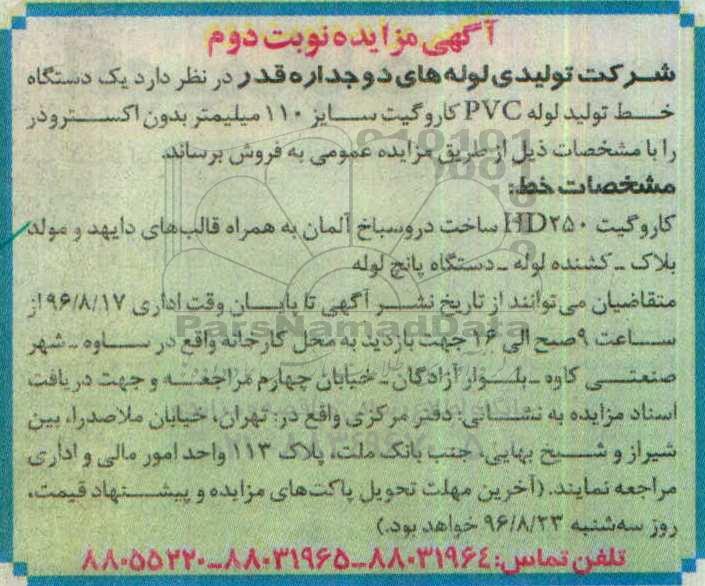 آگهی مزایده نوبت دوم
شرکت تولیدی لوله های دوجداره قدر در نظر دارد یک دستگاه
خط تولید لوله PVC کاروگیت سایز ۱۱۰ میلیمتر بدون اکسترودر
را با مشخصات ذیل از طریق مزایده عمومی به فروش برساند.
مشخصات خط:
کاروگیت HD۲۵۰ ساخت دروسباخ آلمان به همراه قالب‌های دایهد و مولد
بلاک ـ کشنده لوله ـ دستگاه پانچ لوله
متقاضیان می‌توانند از تاریخ نشر آگهی تا پایان وقت اداری ۹۶/۸/۱۷ از
ساعت ۹ صبح الی ۱۶ جهت بازدید به محل کارخانه واقع در ساوه ـ شهر
صنعتی کاوه ـ بلوار آزادگان ـ خیابان چهارم مراجعه و جهت دریافت
اسناد مزایده به نشانی: دفتر مرکزی واقع در: تهران، خیابان ملاصدرا، بین
شیراز و شیخ بهایی، جنب بانک ملت، پلاک ۱۱۳ واحد امور مالی و اداری
مراجعه نمایند. (آخرین مهلت تحویل پاکت‌های مزایده و پیشنهاد قیمت،
روز سه‌شنبه ۹۶/۸/۲۳ خواهد بود.)
تلفن تماس: ۸۸۰۳۱۹۶۴ــ۸۸۰۳۱۹۶۵ــ۸۸۰۵۵۲۲۰
ParsNamadData